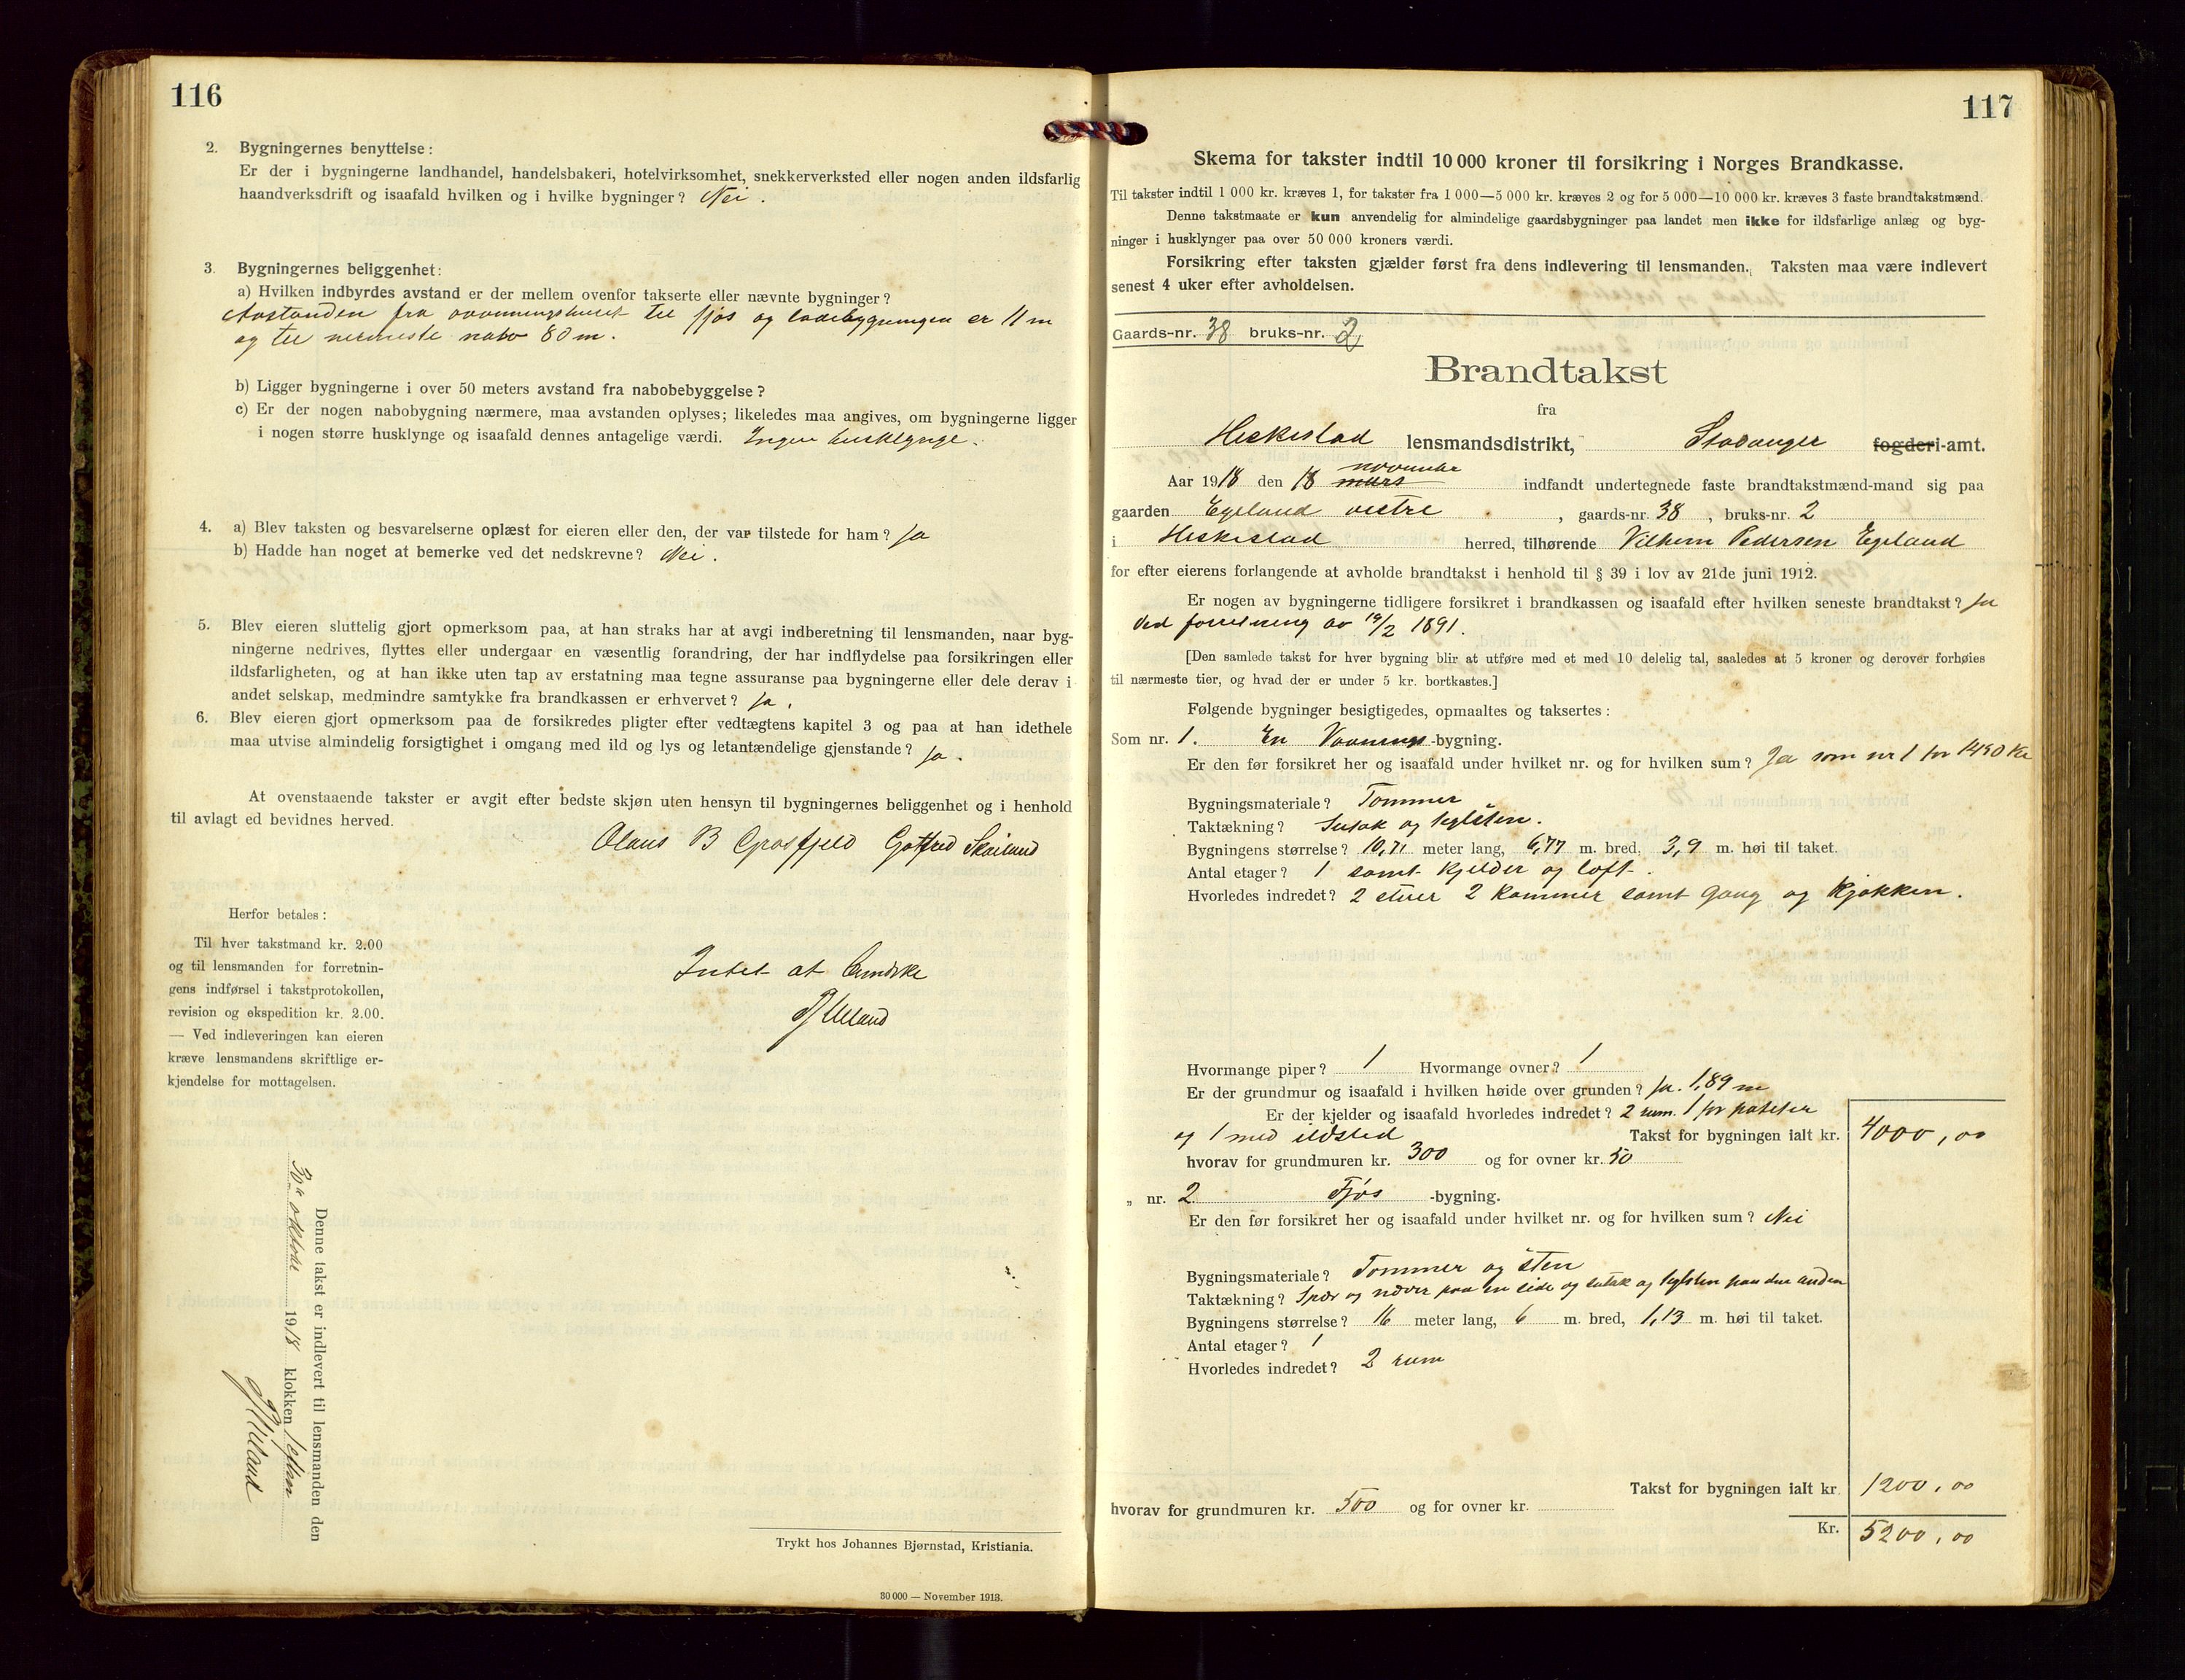 116
2. Bygningernes benyttelse:
Er der i bygningerne landhandel, handelsbakeri, hotelvirksomhet, snekkerverksted eller nogen anden ildsfarlig
haandverksdrift og isaafald hvilken og i hvilke bygninger? Nei.
3. Bygningernes beliggenhet:
a) Hvilken indbyrdes avstand er der mellem ovenfor takserte eller nævnte bygninger?
Avstanden fra vaaningshuset til fjøs og ladebygningen er 11 m
og til nermeste nabo 80 m.
b) Ligger bygningerne i over 50 meters avstand fra nabobebyggelse?
c) Er der nogen nabobygning nærmere, maa avstanden oplyses; likeledes maa angives, om bygningerne ligger
i nogen større husklynge og isaafald dennes antagelige værdi. Ingen husklynge.
4. a) Blev taksten og besvarelserne oplæst for eieren eller den, der var tilstede for ham? Ja
b) Hadde han noget at bemerke ved det nedskrevne? Nei.
5. Blev eieren sluttelig gjort opmerksom paa, at han straks har at avgi indberetning til lensmanden, naar byg-
ningerne nedrives, flyttes eller undergaar en væsentlig forandring, der har indflydelse paa forsikringen eller
ildsfarligheten, og at han ikke uten tap av erstatning maa tegne assuranse paa bygningerne eller dele derav i
andet selskap, medmindre samtykke fra brandkassen er erhvervet? Ja.
6. Blev eieren gjort opmerksom paa de forsikredes pligter efter vedtægtens kapitel 3 og paa at han idethele
maa utvise almindelig forsigtighet i omgang med ild og lys og letantændelige gjenstande? Ja.
At ovenstaaende takster er avgit efter bedste skjøn uten hensyn til bygningernes beliggenhet og i henhold
til avlagt ed bevidnes herved.
Olaus B Grosfjeld Gotfred Skailand
Herfor betales:
Til hver takstmand kr. 2.00
og til lensmanden for forretnin-
gens indførsel i takstprotokollen,
revision og ekspedition kr. 2.00.
— Ved indleveringen kan eieren
kræve lensmandens skriftlige er-
kjendelse for mottagelsen.
Intet at
Denne takst er indlevert til lensmanden den
30te 1918 klokken
Trykt hos Johannes Bjørnstad, Kristiania.
30 000 — November 1913.
117
Skema for takster indtil 10 000 kroner til forsikring i Norges Brandkasse.
Til takster indtil 1 000 kr. kræves 1, for takster fra 1 000—5 000 kr. kræves 2 og for 5 000—10 000 kr. kræves 3 faste brandtakstmænd.
Denne takstmaate er kun anvendelig for almindelige gaardsbygninger paa landet men ikke for ildsfarlige anlæg og byg-
ninger i husklynger paa over 50 000 kroners værdi.
Forsikring efter taksten gjælder først fra dens indlevering til lensmanden. Taksten maa være indlevert
senest 4 uker efter avholdelsen.
Gaards-nr. 38 bruks-nr. 2
Brandtakst
fra
Heskestad lensmandsdistrikt, Stavanger fogderi-amt.
november
Aar 1918 den 18 mars indfandt undertegnede faste brandtakstmænd-mand sig paa
gaarden Egeland vestre, gaards-nr. 38, bruks-nr. 2
i Heskestad herred, tilhørende Vilhem Pedersen Egeland
for efter eierens forlangende at avholde brandtakst i henhold til § 39 i lov av 21de juni 1912.
Er nogen av bygningerne tidligere forsikret i brandkassen og isaafald efter hvilken seneste brandtakst? Ja
ved forretning av 19/2 1891.
[Den samlede takst for hver bygning blir at utføre med et med 10 delelig tal, saaledes at 5 kroner og derover forhøies
til nærmeste tier, og hvad der er under 5 kr. bortkastes.]
Følgende bygninger besigtigedes, opmaaltes og taksertes:
Som nr. 1. En Vaanings-bygning.
Er den før forsikret her og isaafald under hvilket nr. og for hvilken sum? Ja som nr 1 for 1490 Kr
Bygningsmateriale? Tømmer
Taktækning? Sutak og teglsten.
Bygningens størrelse? 10,71 meter lang, 6,77 m. bred, 3,9 m. høi til taket.
Antal etager? 1 samt kjelder og loft.
Hvorledes indredet? 2 stuer 2 kammer samt gang og kjøkken.
Hvormange piper? 1 Hvormange ovner? 1
Er der grundmur og isaafald i hvilken høide over grunden? Ja. 1,89 m
Er der kjelder og isaafald hvorledes indredet? 2 rum. 1 for poteter
og 1 med ildsted Takst for bygningen ialt kr. 4000,00
hvorav for grundmuren kr. 300 og for ovner kr. 50
„ nr. 2 Fjøs-bygning.
Er den før forsikret her og isaafald under hvilket nr. og for hvilken sum? Nei
Bygningsmateriale? Tømmer og sten
Taktækning? Spær og næver paa en side og sutak og teglsten paa den anden
Bygningens størrelse? 16 meter lang, 6 m. bred, 1,13 m. høi til taket.
Antal etager? 1
Hvorledes indredet? 2 rum
Takst for bygningen ialt kr. 1200,00
hvorav for grundmuren kr. 500 og for ovner kr.
Kr. 5200,00